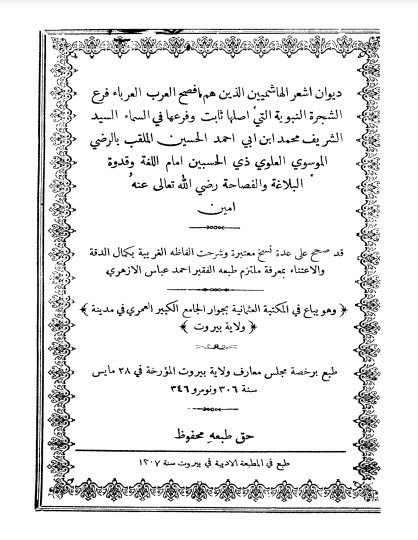 ديوان اشعر الهاشميين الذين هم افصح العرب العرباء فرع
الشجرة النبوية التي اصلها ثابت وفرعها في السماء السيد
الشريف محمد ابن ابي احمد الحسين الملقب بالرضي
الموسوي العلوي ذي الحسبين امام اللغة وقدوة
البلاغة والفصاحة رضي الله تعالى عنه
امين
قد صحح على عدة نسخ معتبرة وشرحت الفاظه الغريبة بكمال الدقة
والاعتناء بمعرفة ملتزم طبعه الفقير احمد عباس الازهري
﴿ وهو يباع في المكتبة العثمانية بجوار الجامع الكبير العمري في مدينة ﴾
﴿ ولاية بيروت ﴾
طبع برخصة مجلس معارف ولاية بيروت المؤرخة في ٢٨ مايس
سنة ٣٠٦ ونومرو ٣٤٦
حق طبعه محفوظ
طبع في المطبعة الادبية في بيروت سنة ١٣٠٧